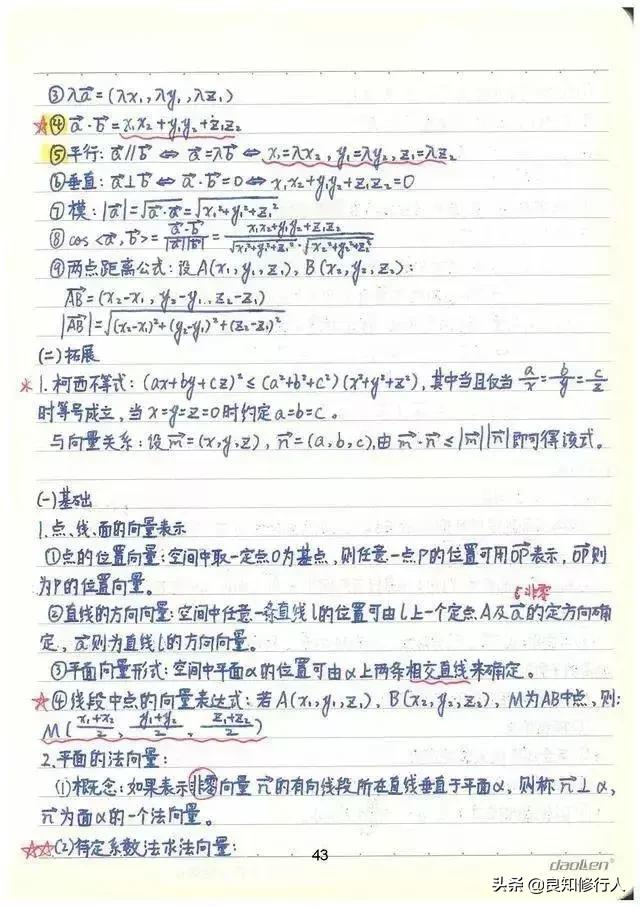 ③λa⃗=(λx₁,λy₁,λz₁)
☆④a⃗·b⃗=x₁x₂+y₁y₂+z₁z₂
⑤平行:a⃗∥b⃗⇔a⃗=λb⃗⇔x₁=λx₂,y₁=λy₂,z₁=λz₂
⑥垂直:a⃗⊥b⃗⇔a⃗·b⃗=0⇔x₁x₂+y₁y₂+z₁z₂=0
⑦模:|a⃗|=√(a⃗·a⃗)=√(x₁²+y₁²+z₁²)
⑧cos<a⃗,b⃗>=(a⃗·b⃗)/(|a⃗||b⃗|)=(x₁x₂+y₁y₂+z₁z₂)/(√(x₁²+y₁²+z₁²)·√(x₂²+y₂²+z₂²))
⑨两点距离公式:设A(x₁,y₁,z₁),B(x₂,y₂,z₂):
AB⃗=(x₂-x₁,y₂-y₁,z₂-z₁)
|AB⃗|=√((x₂-x₁)²+(y₂-y₁)²+(z₂-z₁)²)
(二)拓展
*1.柯西不等式:(ax+by+cz)²≤(a²+b²+c²)(x²+y²+z²),其中当且仅当a/x=b/y=c/z
时等号成立,当x=y=z=0时约定a=b=c。
与向量关系:设m⃗=(x,y,z),n⃗=(a,b,c),由m⃗·n⃗≤|m⃗||n⃗|即可得该式。
(一)基础
1.点、线、面的向量表示
①点的位置向量:空间中取一定点O为基点,则任意一点P的位置可用OP⃗表示,OP⃗则
为P的位置向量。
非零
②直线的方向向量:空间中任意一条直线l的位置可由l上一个定点A及a⃗的定方向确
定,a⃗则为直线l的方向向量。
③平面向量形式:空间中平面α的位置可由α上两条相交直线来确定。
☆④线段中点的向量表达式:若A(x₁,y₁,z₁),B(x₂,y₂,z₂),M为AB中点,则:
M((x₁+x₂)/2,(y₁+y₂)/2,(z₁+z₂)/2)
2.平面的法向量:
(1)概念:如果表示非零向量n⃗的有向线段所在直线垂直于平面α,则称n⃗⊥α,
n⃗为面α的一个法向量。
☆☆(2)待定系数法求法向量:
43
daolen
头条@良知修行人